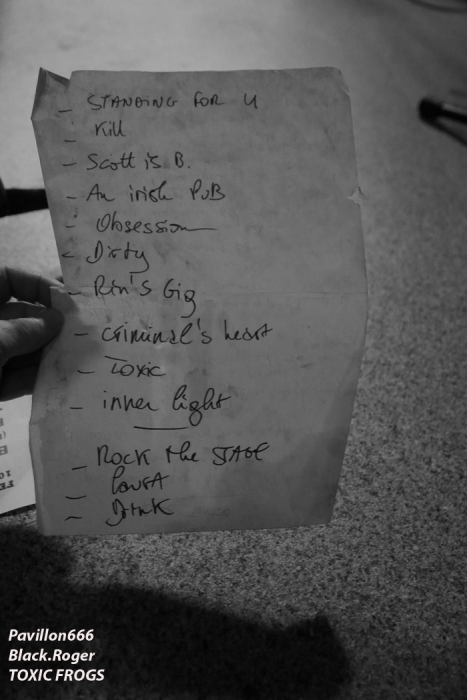 - STANDING FOR U
- Kill
- Scott is B.
- An irish PUB
- Obsession
- Dirty
- Gig
- criminal's heart
- Toxic
- inner light
- ROCK the STAGE
-
- Drink
Pavillon666
Black.Roger
TOXIC FROGS